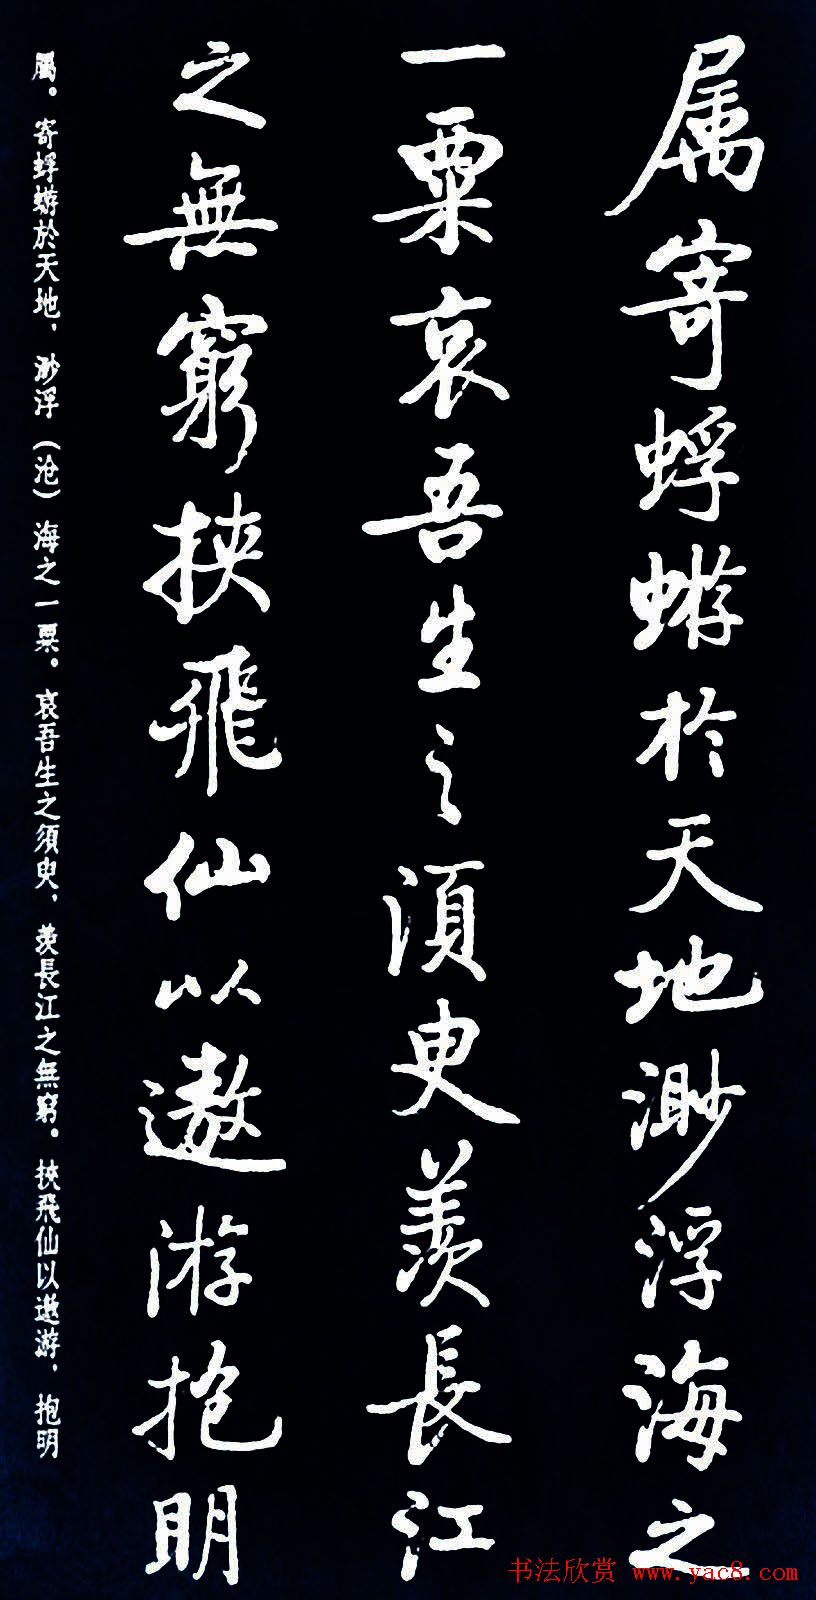 属寄蜉蝣於天地渺浮海之
一粟哀吾生之須臾羨長江
之無窮挾飛仙以遨游抱明
屬。寄蜉蝣於天地，渺浮（沧）海之一粟。哀吾生之須臾，羨長江之無窮。挾飛仙以遨游，抱明
书法欣赏 www.yac8.com